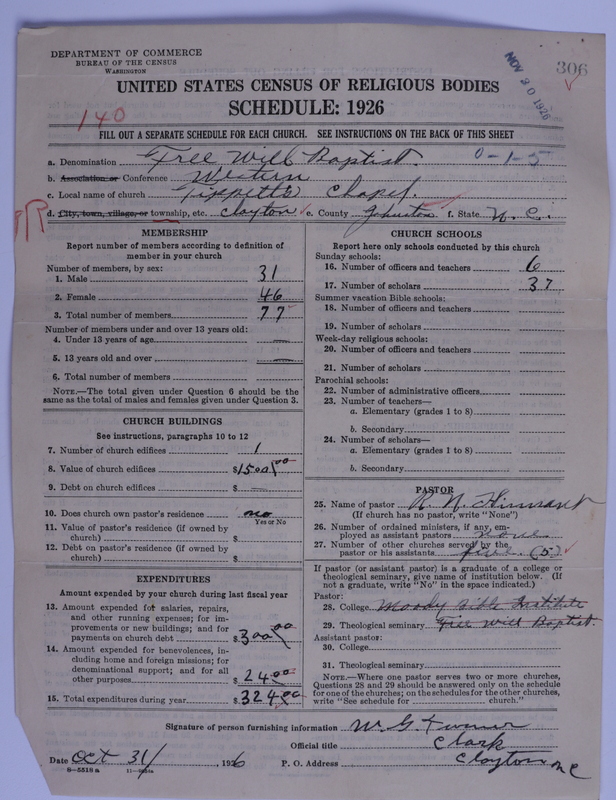 DEPARTMENT OF COMMERCE
BUREAU OF THE CENSUS
WASHINGTON
NOV 20 1926
306
UNITED STATES CENSUS OF RELIGIOUS BODIES
SCHEDULE: 1926
140
FILL OUT A SEPARATE SCHEDULE FOR EACH CHURCH. SEE INSTRUCTIONS ON THE BACK OF THIS SHEET
a. Denomination Free Will Baptist. 0-1-5
b. Association or Conference Western
c. Local name of church Tippetts Chapel.
d. City, town, village, or township, etc. Clayton e. County Johnston f. State N.C.
MEMBERSHIP
Report number of members according to definition of
member in your church
Number of members, by sex:
1. Male 31
2. Female 46
3. Total number of members 77
Number of members under and over 13 years old:
4. Under 13 years of age
5. 13 years old and over
6. Total number of members
NOTE.—The total given under Question 6 should be the
same as the total of males and females given under Question 3.
CHURCH BUILDINGS
See instructions, paragraphs 10 to 12
7. Number of church edifices 1
8. Value of church edifices $1500.00
9. Debt on church edifices $
10. Does church own pastor's residence no
Yes or No
11. Value of pastor's residence (if owned by
church) $
12. Debt on pastor's residence (if owned by
church) $
EXPENDITURES
Amount expended by your church during last fiscal year
13. Amount expended for salaries, repairs,
and other running expenses; for im-
provements or new buildings; and for
payments on church debt $300.00
14. Amount expended for benevolences, in-
cluding home and foreign missions; for
denominational support; and for all
other purposes $24.00
15. Total expenditures during year $324.00
CHURCH SCHOOLS
Report here only schools conducted by this church
Sunday schools:
16. Number of officers and teachers 6
17. Number of scholars 37
Summer vacation Bible schools:
18. Number of officers and teachers
19. Number of scholars
Week-day religious schools:
20. Number of officers and teachers
21. Number of scholars
Parochial schools:
22. Number of administrative officers
23. Number of teachers—
a. Elementary (grades 1 to 8)
b. Secondary
24. Number of scholars—
a. Elementary (grades 1 to 8)
b. Secondary
PASTOR
25. Name of pastor R. N. Hinnant
(If church has no pastor, write "None")
26. Number of ordained ministers, if any, em-
ployed as assistant pastors none
27. Number of other churches served by the
pastor or his assistants five (5)
If pastor (or assistant pastor) is a graduate of a college or
theological seminary, give name of institution below. (If
not a graduate, write "No" in the space indicated.)
Pastor:
28. College Moody Bible Institute
29. Theological seminary Free Will Baptist.
Assistant pastor:
30. College
31. Theological seminary
NOTE.—Where one pastor serves two or more churches,
Questions 28 and 29 should be answered only on the schedule
for one of the churches; on the schedules for the other churches,
write "See schedule for church."
Signature of person furnishing information W. G. Turner
Official title Clark
Date Oct 31/, 1926 P. O. Address Clayton N C
8-5518 a